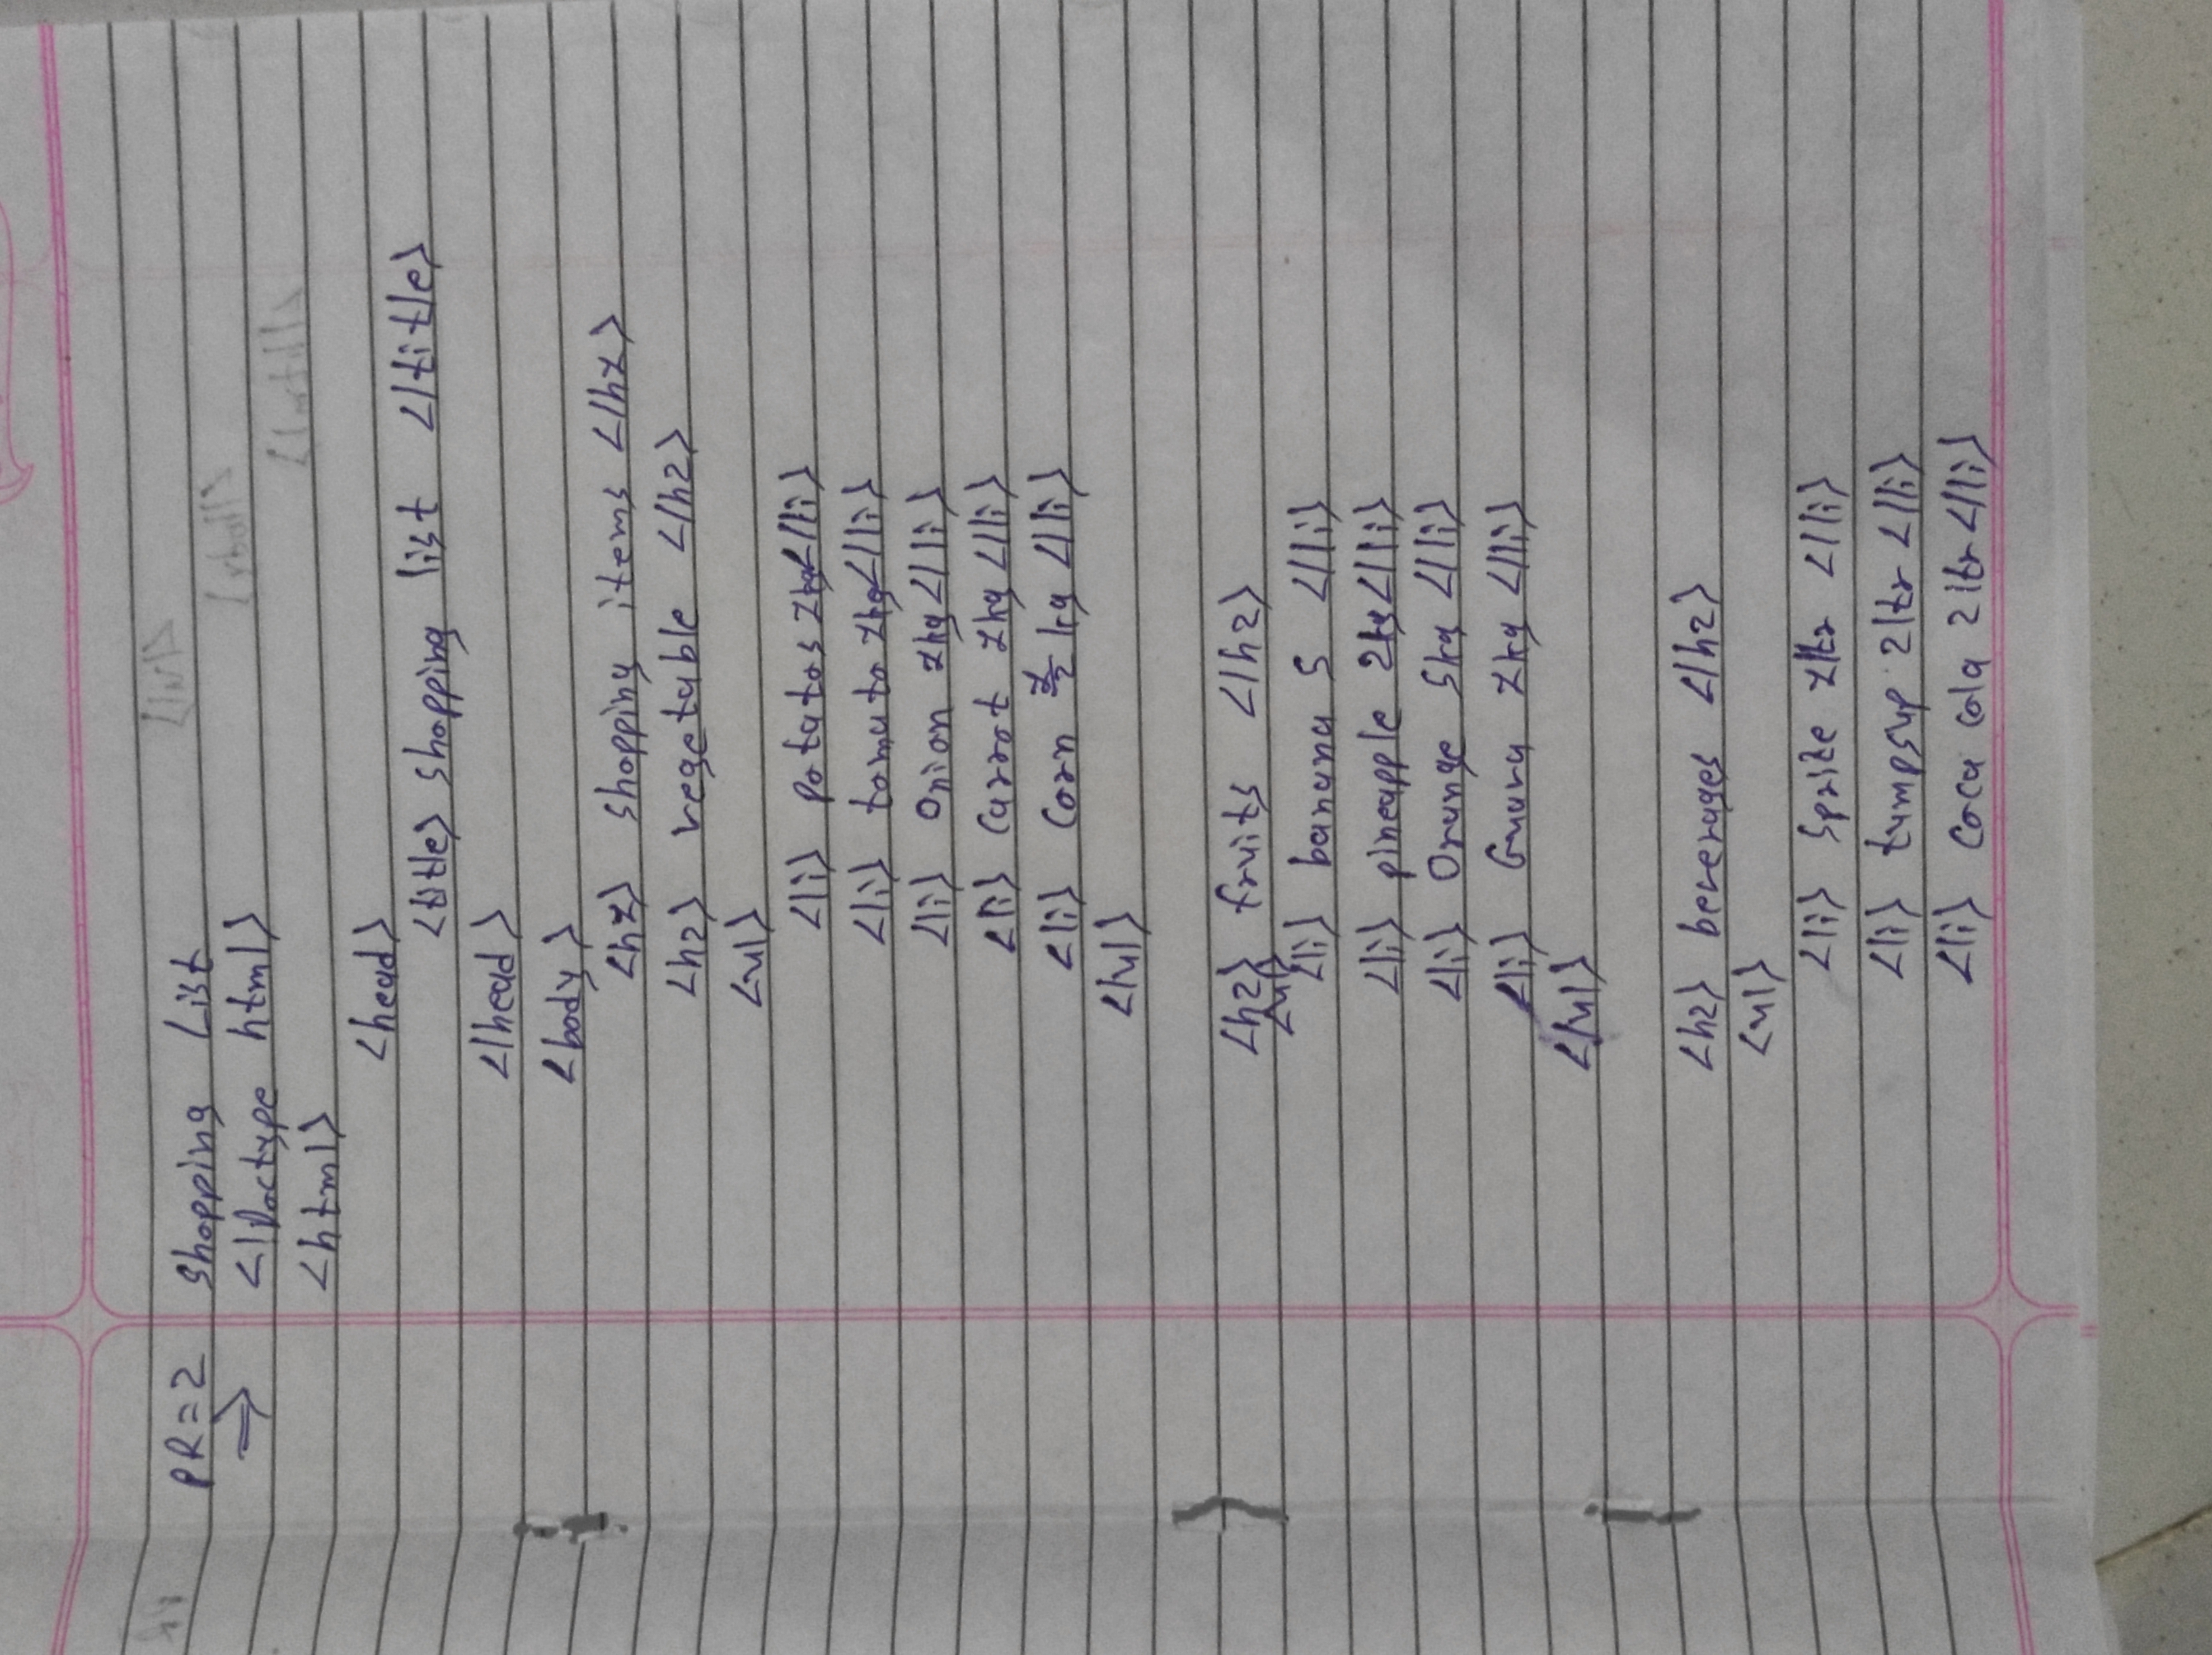 PR=2 shopping List
<!Doctype html>
<html>
<head>
<title> shopping list </title>
</head>
<body>
<h1> shopping items </h1>
<h2> vegetable </h2>
<ul>
<li> potatos 1kg</li>
<li> tomato 1kg</li>
<li> Onion 1kg</li>
<li> Carrot 1kg </li>
<li> Corn 1/2 kg </li>
</ul>
<h2> fruits </h2>
<ul>
<li> banana 5 </li>
<li> pineapple 2kg</li>
<li> Orange 5kg </li>
<li> Guava 1kg </li>
</ul>
<h2> beverages </h2>
<ul>
<li> Sprite 1ltr </li>
<li> tumpsup 2ltr </li>
<li> Coca cola 2ltr </li>